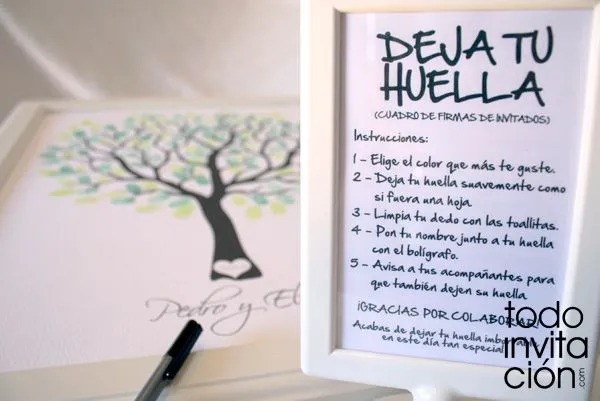 DEJA TU
HUELLA
(CUADRO DE FIRMAS DE INVITADOS)
Instrucciones:
1 - Elige el color que más te guste.
2 - Deja tu huella suavemente como
si fuera una hoja.
3 - Limpia tu dedo con las toallitas.
4 - Pon tu nombre junto a tu huella
con el bolígrafo.
5 - Avisa a tus acompañantes para
que también dejen su huella
¡GRACIAS POR COLABORAR!
Acabas de dejar tu huella
en este día tan especial
Pedro y El
todo
invita
ción.com